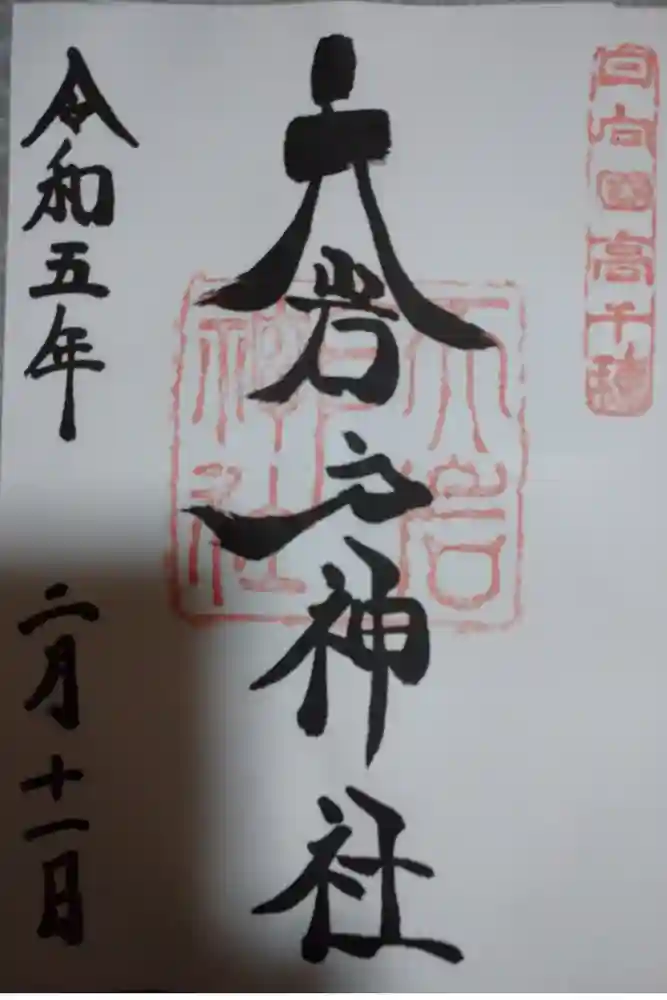 日向国高千穂
天岩戸神社
天岩戸神社
令和五年 二月十一日